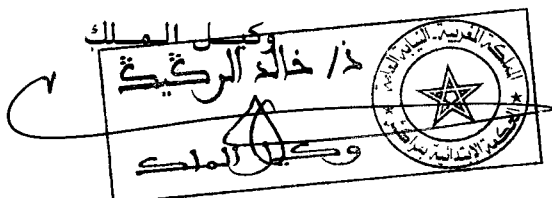 وكيل الملك
ذ/ خالد الركيك
وكيل الملك
المملكة المغربية - النيابة العامة
المحكمة الابتدائية بمراكش